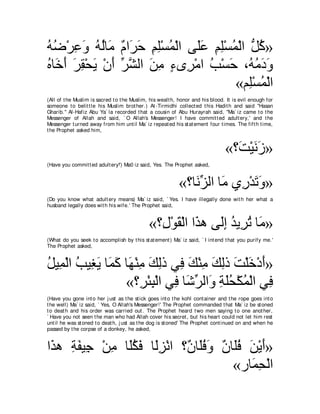 «كُلُّ الْمُسْلِمِ عَلَى الْمُسْلِمِ حَرَامٌ مَالُهُ وَعِرْضُهُ
وَدَمُهُ، حَسْبُ امْرِىءٍ مِنَ الشَّرِّ أَنْ يَحْقِرَ أَخَاهُ
الْمُسْلِم»
(All of the Muslim is sacred to the Muslim, his wealth, honor and his blood. It is evil enough for
someone to belittle his Muslim brother.) At-Tirmidhi collected this Hadith and said "Hasan
Gharib." Al-Hafiz Abu Ya`la recorded that a cousin of Abu Hurayrah said, "Ma`iz came to the
Messenger of Allah and said, `O Allah's Messenger! I have committed adultery,' and the
Messenger turned away from him until Ma`iz repeated his statement four times. The fifth time,
the Prophet asked him,
«زَنَيْتَ؟»
(Have you committed adultery?) Ma`iz said, `Yes. The Prophet asked,
«وَتَدْرِي مَا الزِّنَا؟»
(Do you know what adultery means) Ma`iz said, `Yes. I have illegally done with her what a
husband legally does with his wife.' The Prophet said,
«مَا تُرِيدُ إِلَى هذَا الْقَوْلِ؟»
(What do you seek to accomplish by this statement) Ma`iz said, `I intend that you purify me.'
The Prophet asked,
«أَدْخَلْتَ ذلِكَ مِنْكَ فِي ذلِكَ مِنْهَا كَمَا يَغِيبُ الْمِيلُ
فِي الْمُكْحُلَةِ وَالرِّشَا فِي الْبِئْرِ؟»
(Have you gone into her just as the stick goes into the kohl container and the rope goes into
the well) Ma`iz said, `Yes, O Allah's Messenger!' The Prophet commanded that Ma`iz be stoned
to death and his order was carried out. The Prophet heard two men saying to one another,
`Have you not seen the man who had Allah cover his secret, but his heart could not let him rest
until he was stoned to death, just as the dog is stoned' The Prophet continued on and when he
passed by the corpse of a donkey, he asked,
«أَيْنَ فُلَانٌ وَفُلَانٌ؟ انْزِلَا فَكُلَا مِنْ جِيفَةِ هذَا
الْحِمَار»